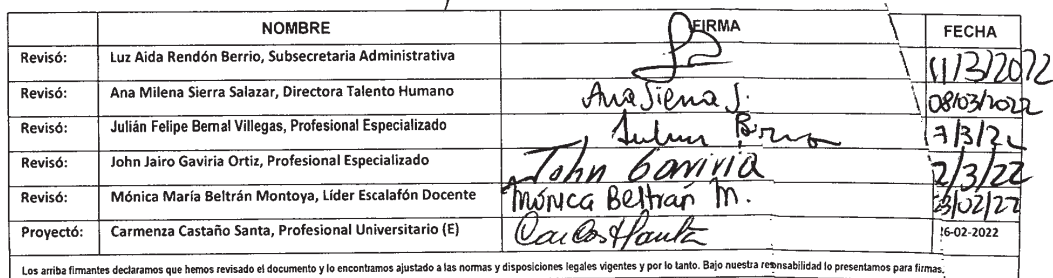 NOMBRE FIRMA FECHA
Revisó: Luz Aida Rendón Berrio, Subsecretaria Administrativa 11/3/2022
Revisó: Ana Milena Sierra Salazar, Directora Talento Humano Ana Sierra S. 08/03/2022
Revisó: Julián Felipe Bernal Villegas, Profesional Especializado 7/3/22
Revisó: John Jairo Gaviria Ortiz, Profesional Especializado John Gaviria 2/3/22
Revisó: Mónica María Beltrán Montoya, Líder Escalafón Docente Mónica Beltrán M. /02/22
Proyectó: Carmenza Castaño Santa, Profesional Universitario (E) 6-02-2022
Los arriba firmantes declaramos que hemos revisado el documento y lo encontramos ajustado a las normas y disposiciones legales vigentes y por lo tanto. Bajo nuestra responsabilidad lo presentamos para firmas.